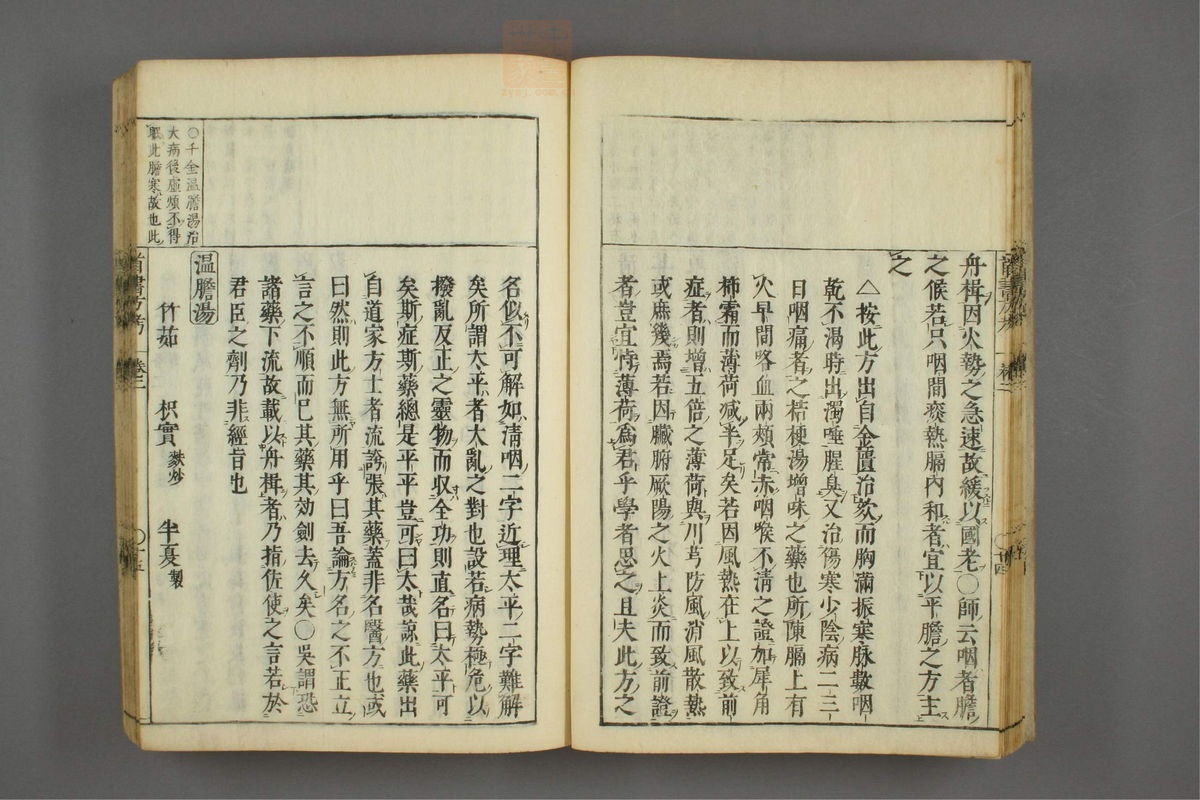 舟楫因火勢之急速故緩以國老〇師云咽者膽
之候若只咽間痰熱膈內和者宜以平膽之方主
之
△按此方出自金匱治欬而胸滿振寒脉數咽
乾不渴時出濁唾腥臭又治傷寒少陰病二三
日咽痛者之桔梗湯增味之藥也所陳膈上有
火早間咯血兩頰常赤咽喉不清之證加犀角
柿霜而薄荷減半足矣若因風熱在上以致前
症者則增五倍之薄荷與川芎防風消風散熱
或庶幾焉若因臟腑厥陽之火上炎而致前證
者豈宜恃薄荷爲君乎學者思之且夫此方之
名似不可解如清咽二字近理太平二字難解
矣所謂太平者大亂之對也設若病勢極危以
撥亂反正之靈物而収全功則直名曰太平可
矣斯症斯藥總是平平豈可曰太哉諒此藥出
自道家方士者流誇張其藥蓋非名醫方也或
曰然則此方無所用乎曰吾論方名之不正立
言之不順而已其藥其効劍去久矣〇吳謂恐
諸藥下流故載以舟楫者乃指佐使之言若於
君臣之劑乃非經旨也
〇千金温膽湯治
大病後虛煩不得
眠此膽寒故也此
温膽湯
竹茹 枳實麩炒 半夏製
卷三
〇十五